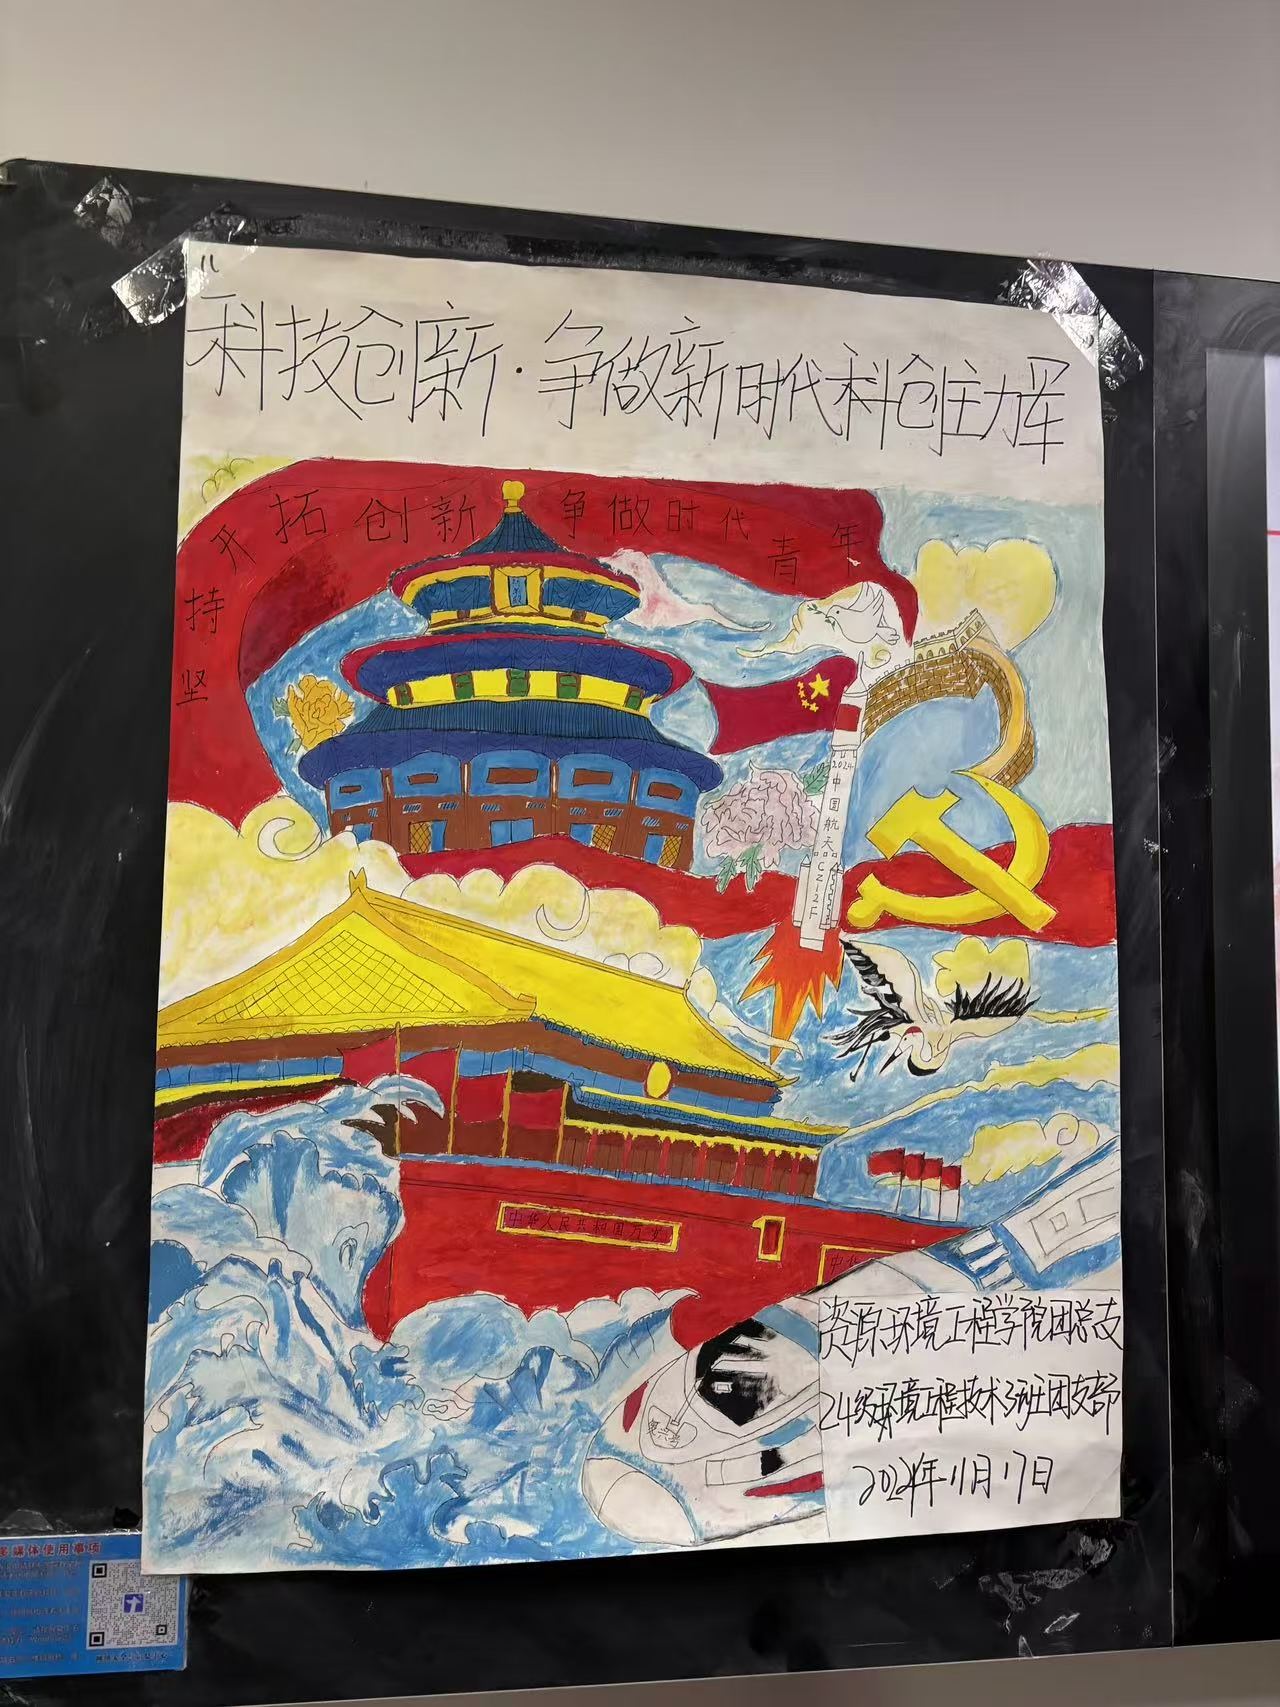 科技创新·争做新时代科创主力军
坚持开拓创新 争做时代青年
2024
中国航天
CZ12F
中华人民共和国万岁
资源环境工程学院团总支
24级环境工程技术3班团支部
2024年11月17日
多媒体使用事项